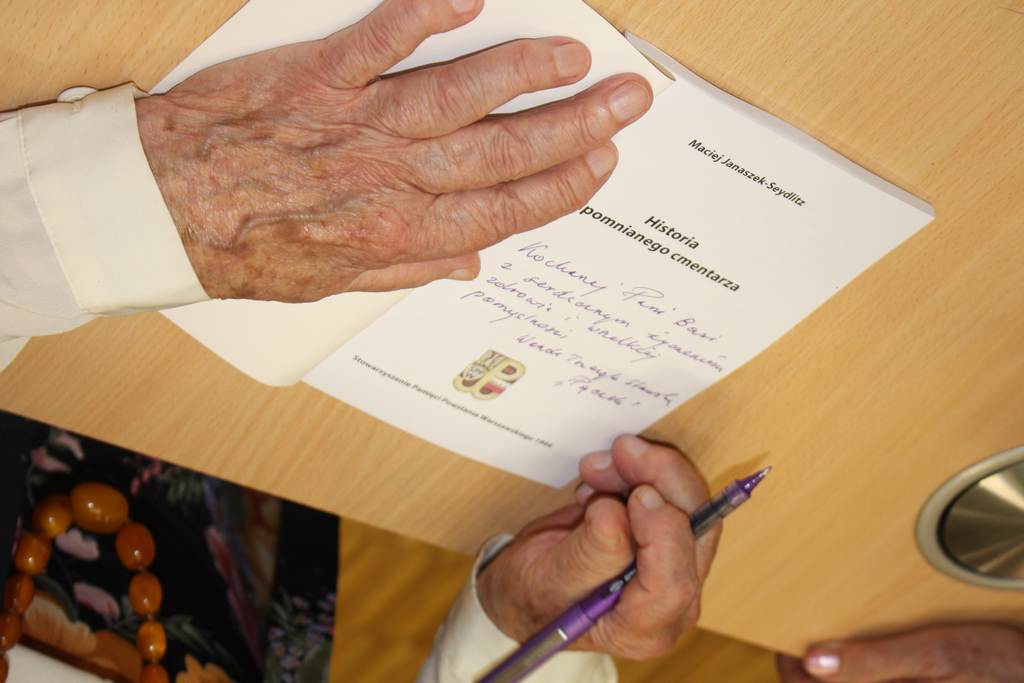 Maciej Janaszek-Seydlitz
Historia
pomnianego cmentarza
Kochanej Pani Basi
z serdecznymi życzeniami
zdrowia i wszelkiej
pomyślności
Wanda
"Pączek"
Stowarzyszenie Pamięci Powstania Warszawskiego 1944